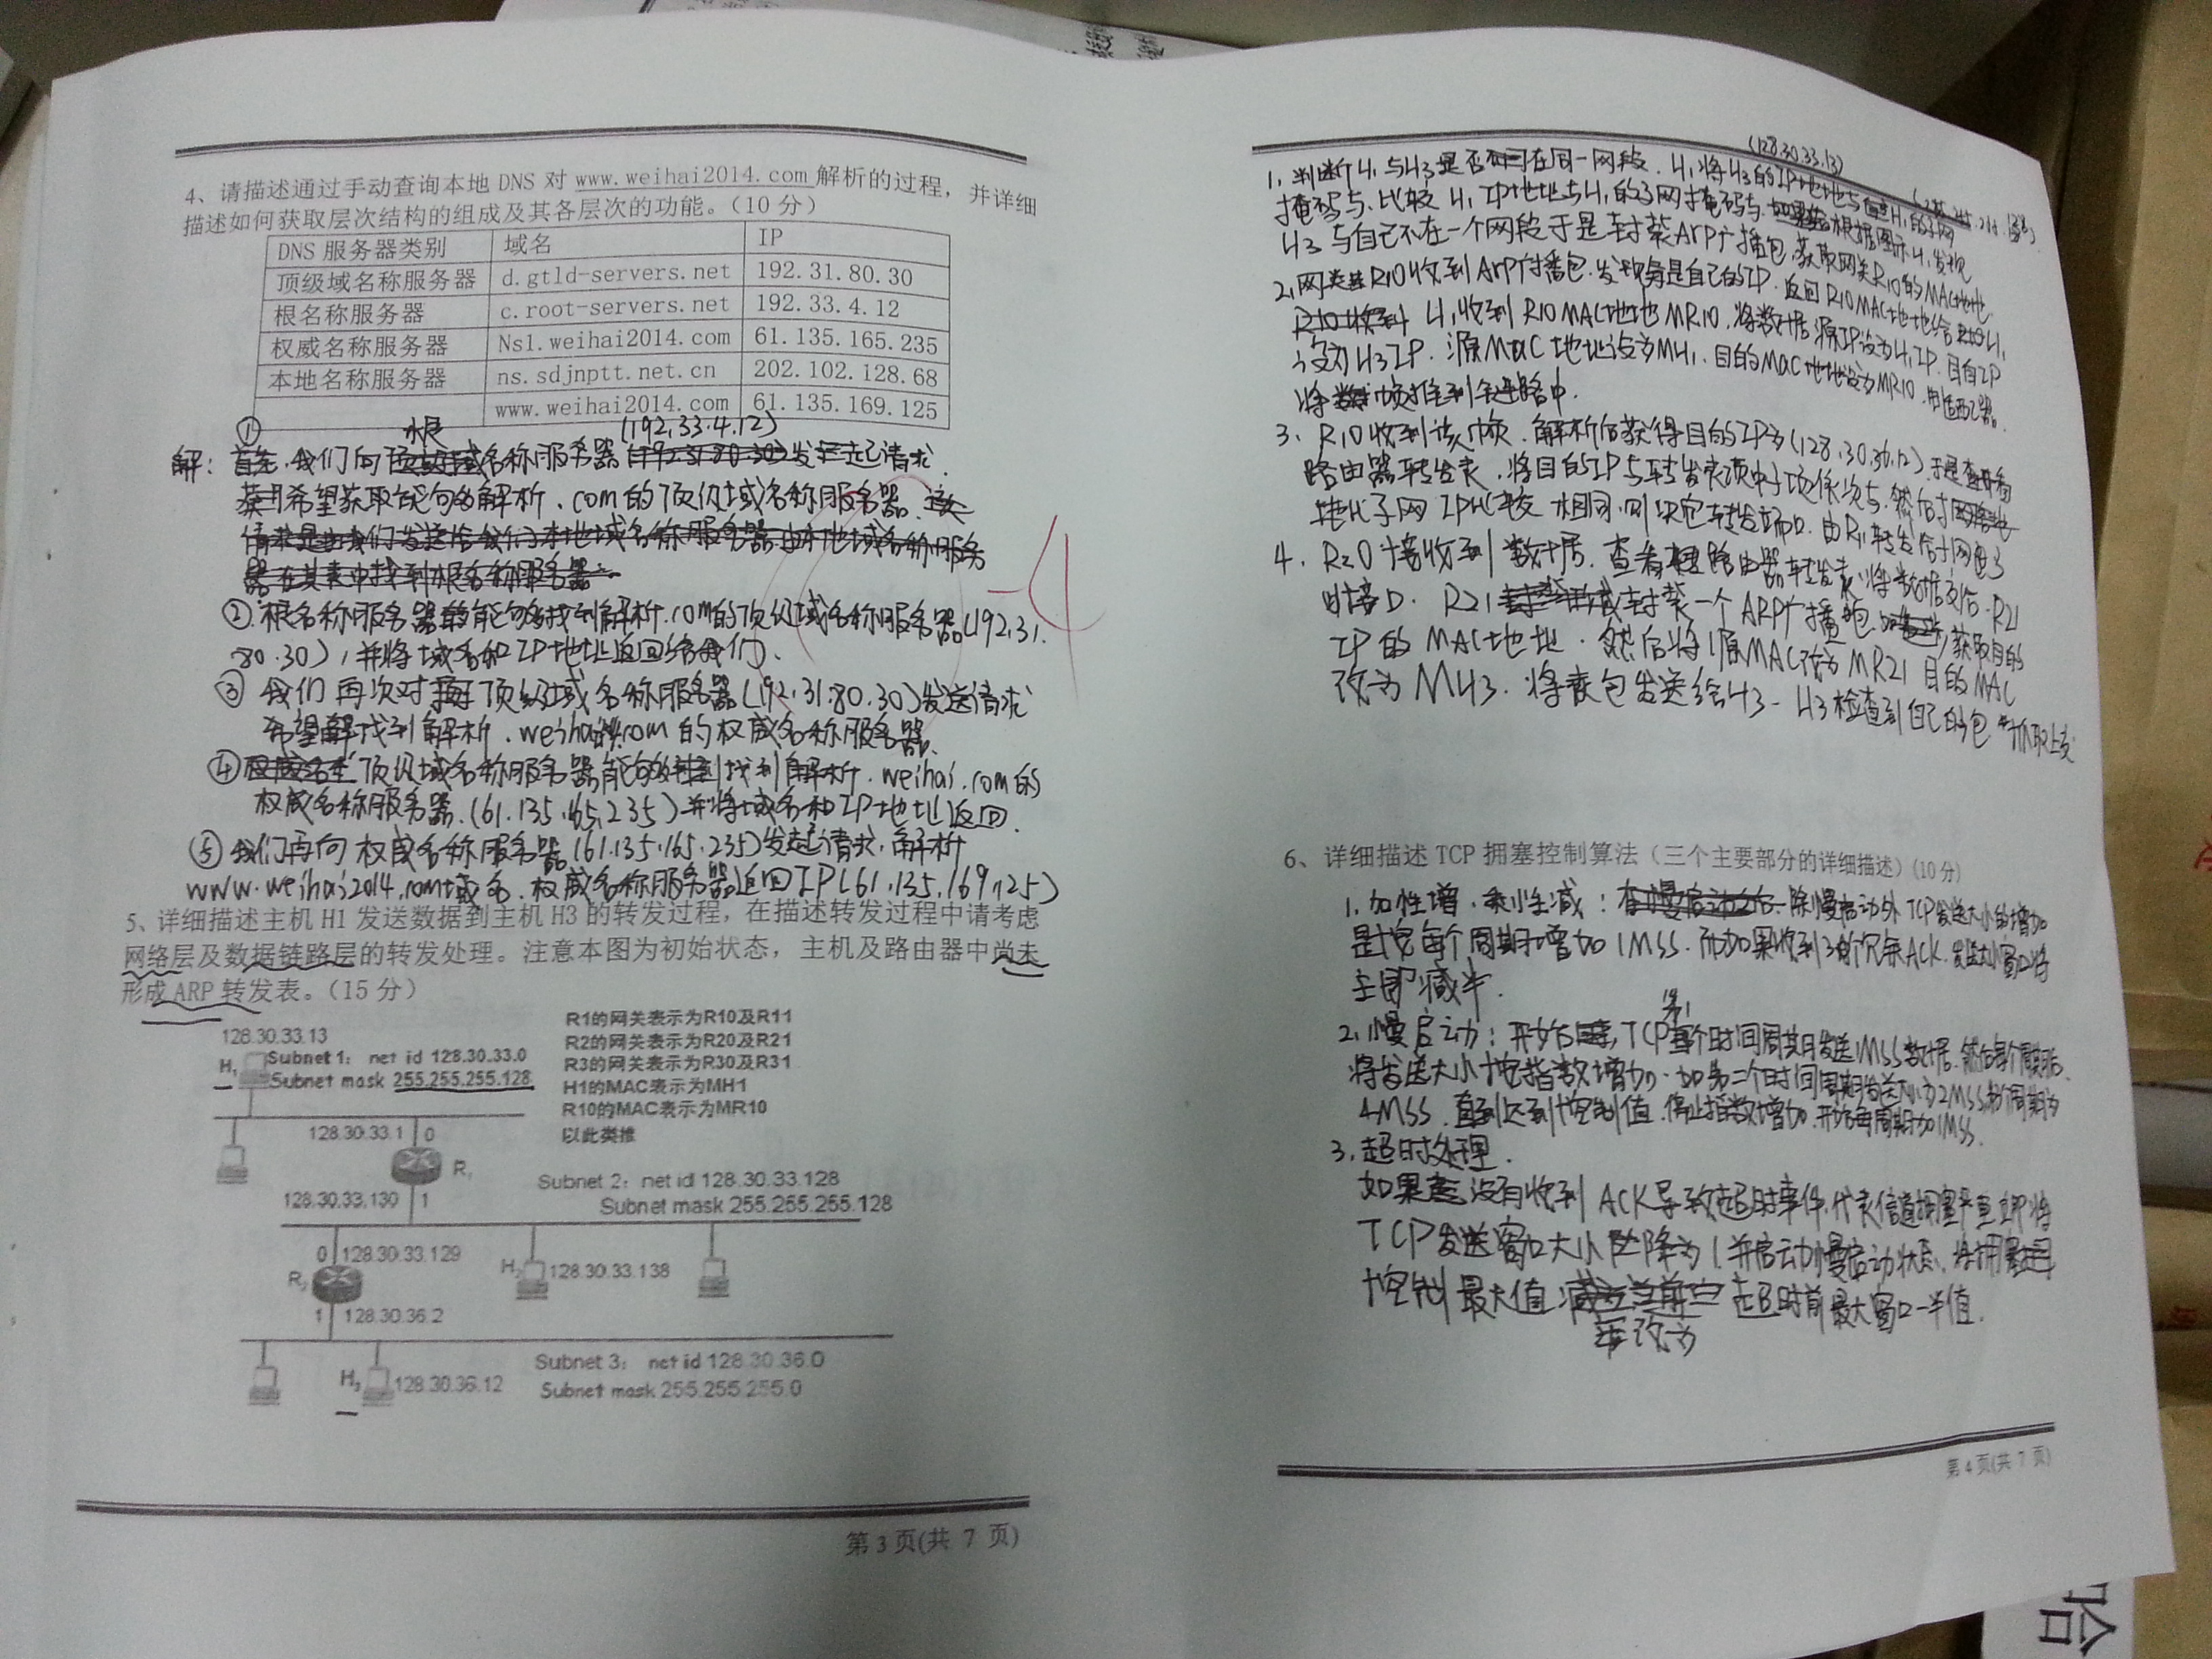 4、请描述通过手动查询本地 DNS 对 www.weihai2014.com 解析的过程，并详细
描述如何获取层次结构的组成及其各层次的功能。（10 分）
DNS 服务器类别 域名 IP
顶级域名称服务器 d.gtld-servers.net 192.31.80.30
根名称服务器 c.root-servers.net 192.33.4.12
权威名称服务器 Ns1.weihai2014.com 61.135.165.235
本地名称服务器 ns.sdjnptt.net.cn 202.102.128.68
www.weihai2014.com 61.135.169.125
① 根 (192.33.4.12)
解：首先，我们向顶级域名称服务器 发起请求.
希望获取能够解析.com的顶级域名称服务器.
②.根名称服务器能够找到解析.com的顶级域名称服务器(192.31.
80.30)，并将域名和IP地址返回给我们.
③ 我们再次对顶级域名称服务器(192.31.80.30)发送请求
希望找到解析.weihai.com的权威名称服务器.
④ 顶级域名称服务器能够找到解析.weihai.com的
权威名称服务器.(61.135.165.235)并将域名和IP地址返回.
⑤ 我们再向权威名称服务器(61.135.165.235)发起请求,解析
www.weihai2014.com域名.权威名称服务器返回IP(61.135.169.125)
-4
5、详细描述主机 H1 发送数据到主机 H3 的转发过程，在描述转发过程中请考虑
网络层及数据链路层的转发处理。注意本图为初始状态，主机及路由器中尚未
形成 ARP 转发表。（15 分）
128.30.33.13
H1
Subnet 1: net id 128.30.33.0
Subnet mask 255.255.255.128
R1的网关表示为R10及R11
R2的网关表示为R20及R21
R3的网关表示为R30及R31
H1的MAC表示为MH1
R10的MAC表示为MR10
以此类推
128.30.33.1 0
R1
128.30.33.130 1
Subnet 2: net id 128.30.33.128
Subnet mask 255.255.255.128
0 128.30.33.129
R2
H2 128.30.33.138
1 128.30.36.2
Subnet 3: net id 128.30.36.0
Subnet mask 255.255.255.0
H3 128.30.36.12
第 3 页(共 7 页)
(128.30.33.13)
1. 判断H1与H3是否在同一网段. H1将H3的IP地址与H1的子网
掩码与.比较H1 IP地址与H1的子网掩码与. 根据图示H1发现
H3与自己不在一个网段于是封装ARP广播包,获取网关R10的MAC地址
2, R10收到ARP广播包.发现是自己的IP.返回R10MAC地址给H1
H1收到R10MAC地址MR10,将数据源IP设为H1IP.目的IP
设为H3IP.源MAC地址设为MH1.目的MAC地址设为MR10.
将帧推到链路中.
3、R10收到该帧.解析后获得目的IP为(128.30.36.12).于是查看
路由器转发表.将目的IP与转发表项中子项依次与.然后
子网IP比较相同,则决定转发端口.由R11转发给
4. R20接收到数据.查看路由器转发表.将数据交给.R21
接口. R21封装一个ARP广播包,获取目的
IP的MAC地址.然后将源MAC改为MR21目的MAC
改为MH3.将包发送给H3- H3检查到自己的包
6、详细描述 TCP 拥塞控制算法（三个主要部分的详细描述）（10 分）
1.加性增.乘性减: 除慢启动外TCP发送大小的增加
是按每个周期增加1MSS.而如果收到3个冗余ACK.发送窗口将
立即减半.
2,慢启动:开始后,TCP第1个时间周期发送1MSS数据.然后每个周期后.
将发送大小按指数增加.如第二个时间周期发送大小为2MSS 周期为
4MSS.直到达到控制值.停止指数增加.开始每周期加1MSS.
3,超时处理.
如果没有收到ACK导致超时事件,代表信道拥塞严重立即将
TCP发送窗口大小降为1并启动慢启动状态,将拥塞
控制最大值 超时前最大窗口一半值.
改为
第 4 页(共 7 页)
哈